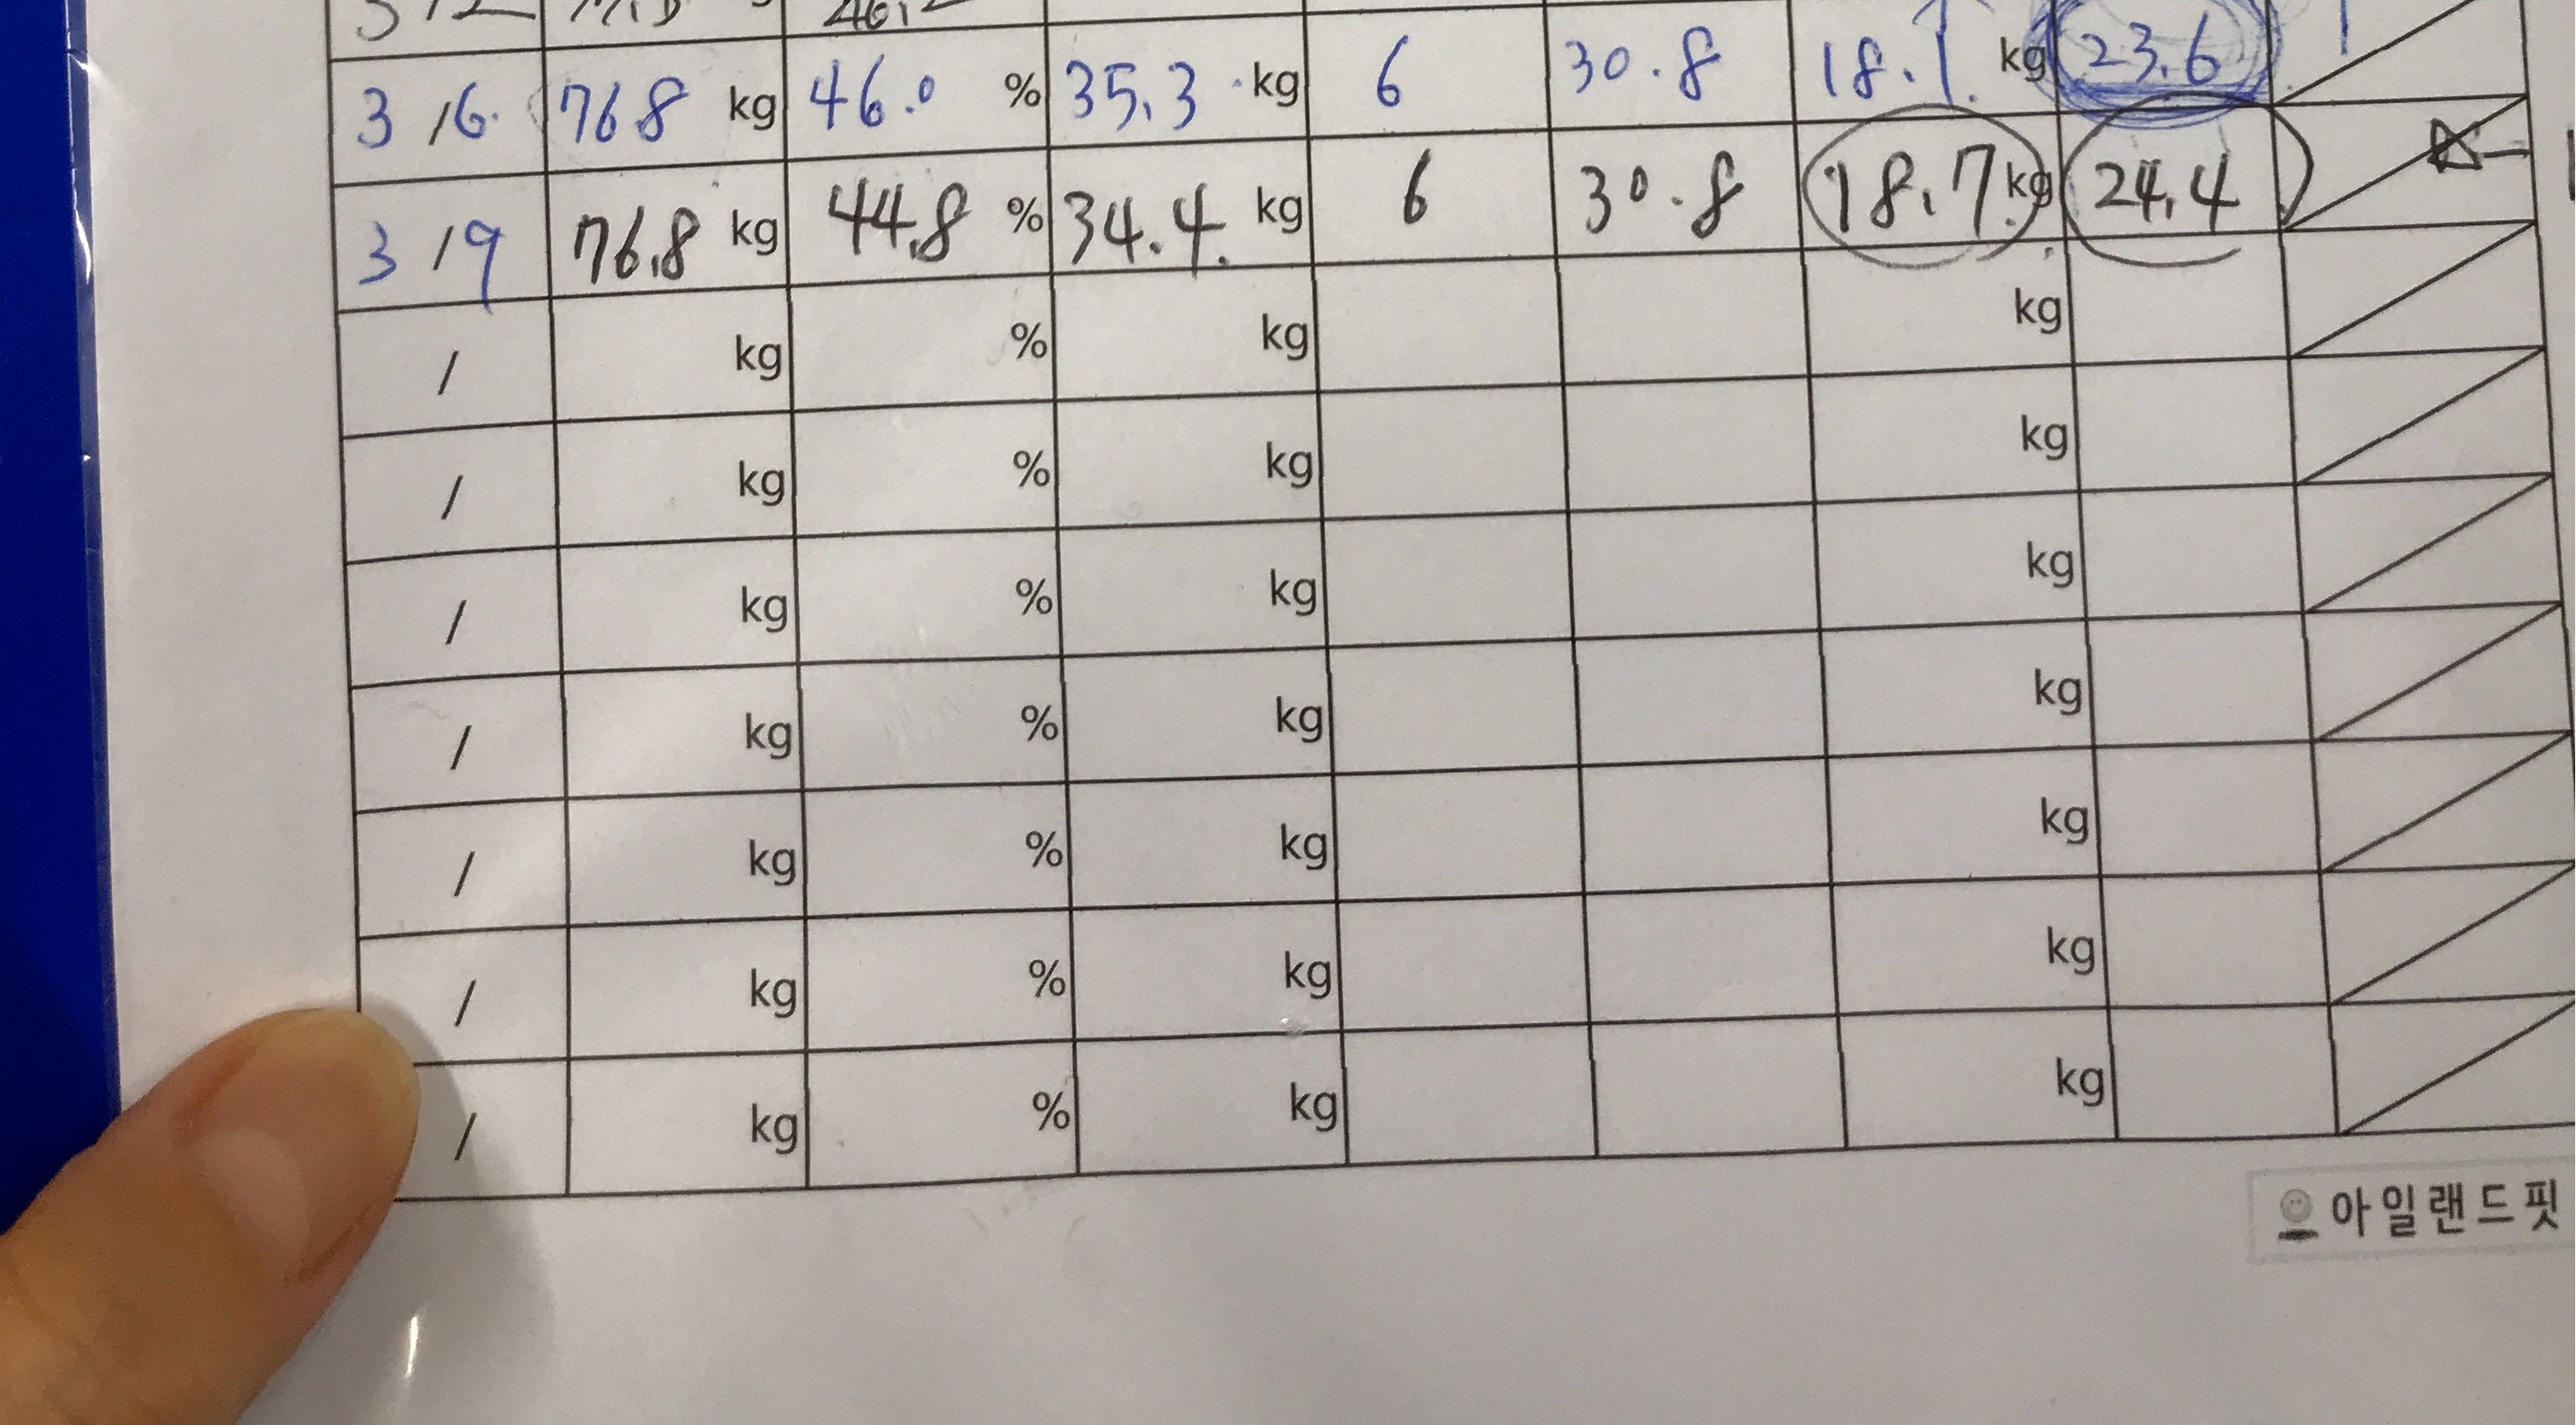 3 /6. 76.8 kg 46.0 % 35.3 kg 6 30.8 18.1 kg 23.6
3 /9 76.8 kg 44.8 % 34.4 kg 6 30.8 18.7 kg 24.4
/ kg % kg kg
/ kg % kg kg
/ kg % kg kg
/ kg % kg kg
/ kg % kg kg
/ kg % kg kg
/ kg % kg kg
아일랜드핏